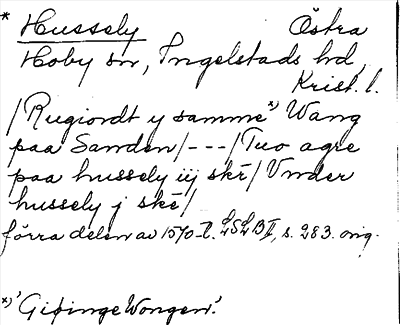 * Hussely Östra
Hoby sn, Ingelstads hd,
Krist. l.
/Rugiordt y samme *) Wang
paa Sanden/---/Tuo agre
paa hussely iij skē/Vnder
hussely j skē/
förra delen av 1570-t. LSLB II, s. 283. orig.
*) 'Gipinge Wongen'.